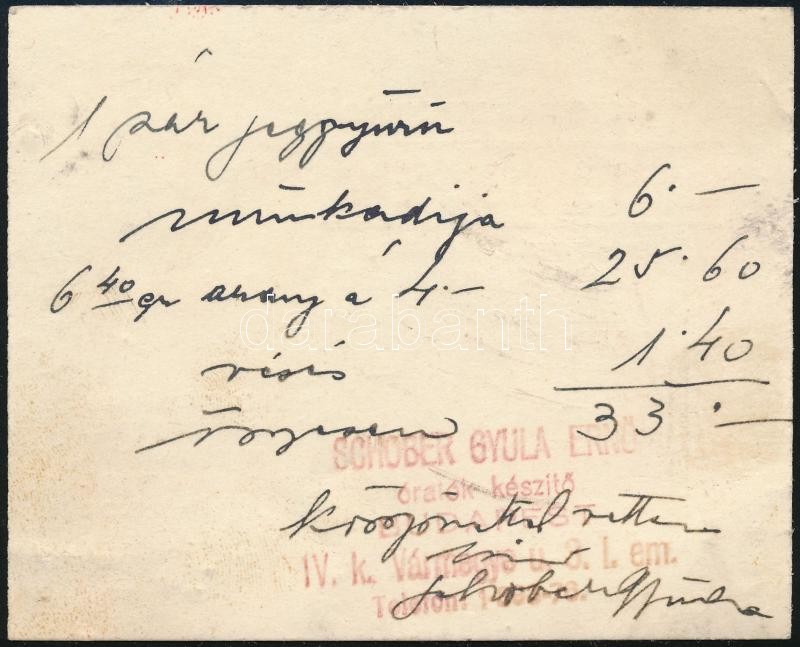 1 pár jeggyűrű
munkadija 6.—
6 40 gr arany á 4.— 25.60
vésés 1.40
összesen 33.—
SCHOBER GYULA ERNŐ
óratok készitő
BUDAPEST
köszönettel vettem
IV. k. Vármegye u. 3. I. em.
Schober Gyula
Telefon:
darabanth